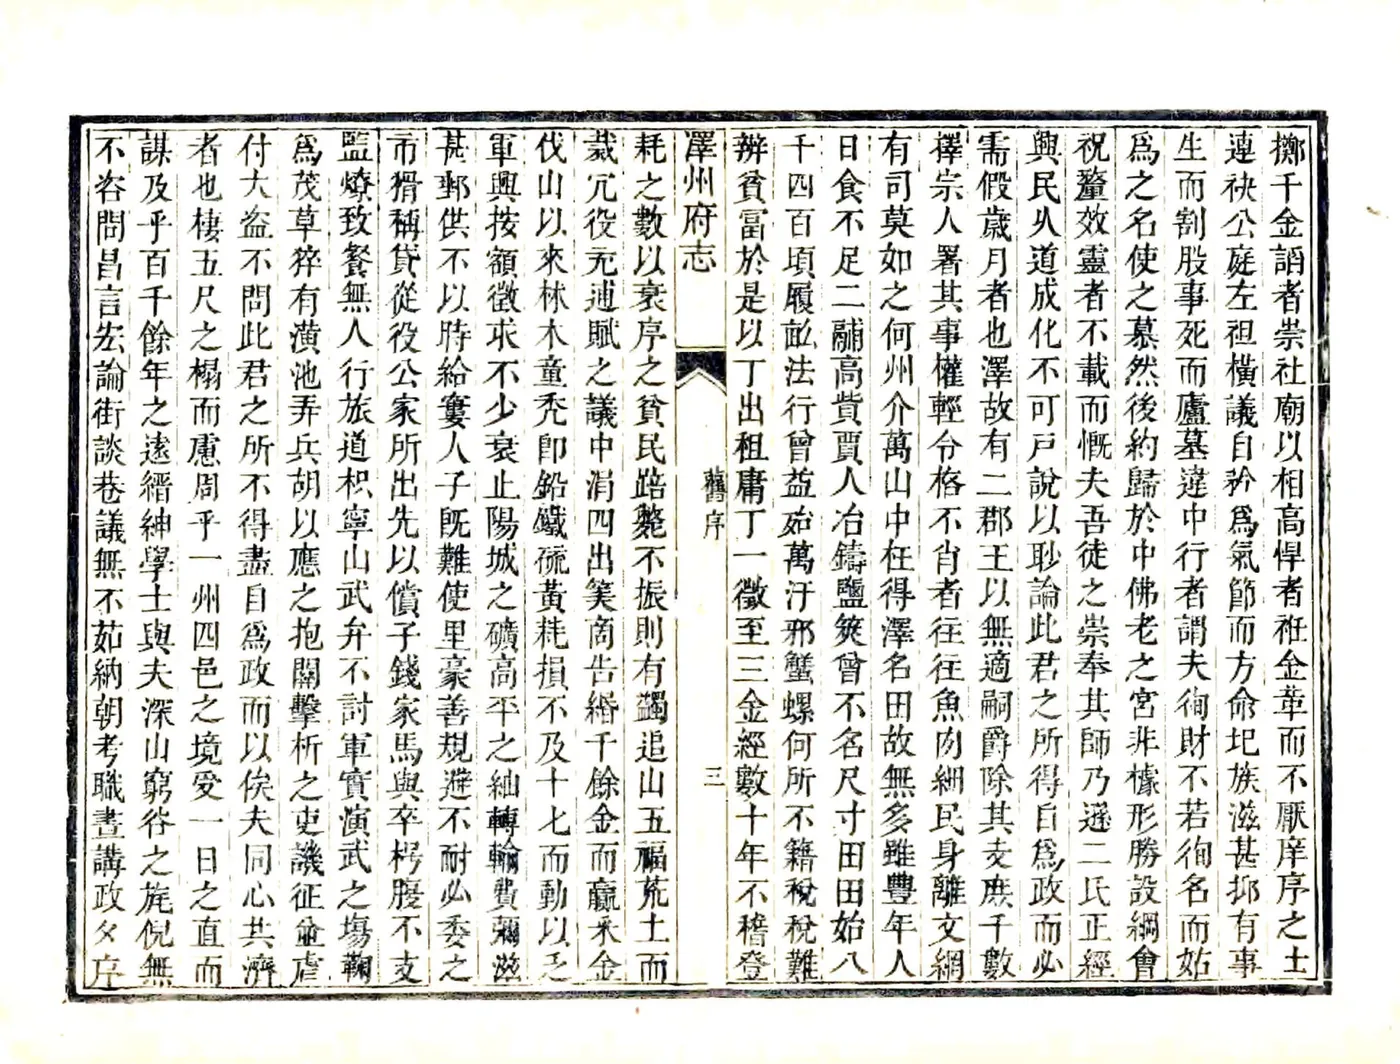 擲千金謟者崇社廟以相高悍者袵金革而不厭庠序之士
連袂公庭左袒橫議自矜爲氣節而方命圯族滋甚抑有事
生而割股事死而廬墓違中行者謂夫徇財不若徇名而姑
爲之名使之慕然後約歸於中佛老之宮非據形勝設綱會
祝釐效靈者不載而慨夫吾徒之崇奉其師乃遜二氏正經
興民乆道成化不可戸說以眇論此君之所得自爲政而必
需假歲月者也澤故有二郡王以無適嗣爵除其支庶千數
擇宗人署其事權輕令格不肖者往往魚肉細民身離文網
有司莫如之何州介萬山中枉得澤名田故無多雖豐年人
日食不足二鬴高貲賈人冶鑄鹽筴曾不名尺寸田田始八
千四百頃履畝法行曾益始萬汙邪蟹螺何所不籍稅稅難
辨貧富於是以丁出租庸丁一徵至三金經數十年不稽登
澤州府志
舊序
三
耗之數以衰序之貧民踣斃不振則有蠲追山五福荒土而
裁冗役充逋賦之議中涓四出筭商告緡千餘金而贏采金
伐山以來林木童禿卽鉛鐵硫黃耗損不及十七而動以乏
軍興按額徵求不少衰止陽城之礦高平之紬轉輸費彌滋
甚郵供不以時給窶人子旣難使里豪善規避不耐必委之
市猾稱貸從役公家所出先以償子錢家馬與卒枵腹不支
監燎致餐無人行旅道枳寧山武弁不討軍實演武之場鞠
爲茂草猝有潢池弄兵胡以應之抱關擊柝之吏譏征並虐
付大盜不問此君之所不得盡自爲政而以俟夫同心共濟
者也棲五尺之榻而慮周乎一州四邑之境受一日之直而
謀及乎百千餘年之遠縉紳學士與夫深山窮谷之旄倪無
不咨問昌言宏論街談巷議無不茹納朝考職晝講政夕序